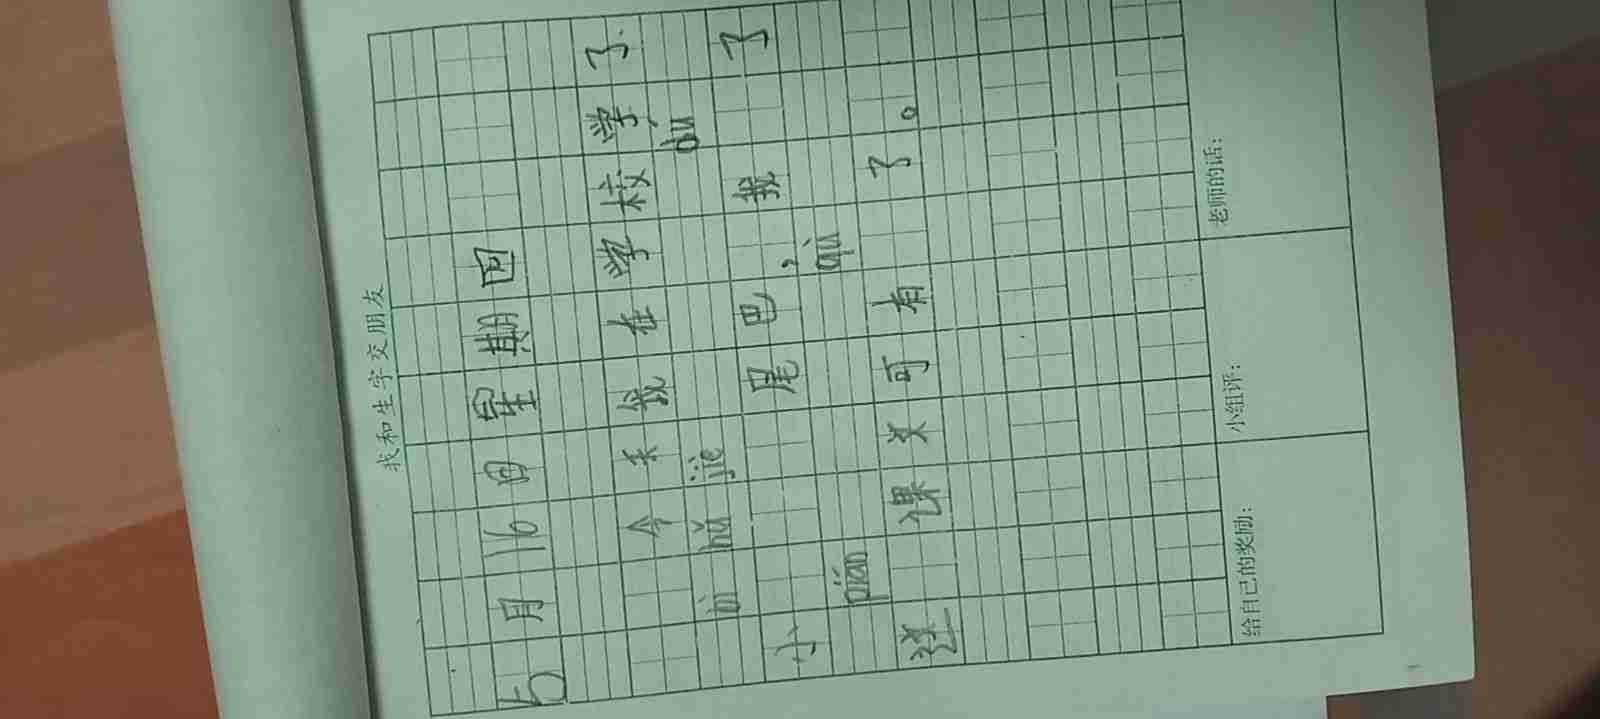 我和生字交朋友
5月16日星期四
今天我在学校学了
bì hǔ jiè du
小 尾巴，我 了
piān qù
这 课文可有 了。
给自己的奖励： 小组评： 老师的话：